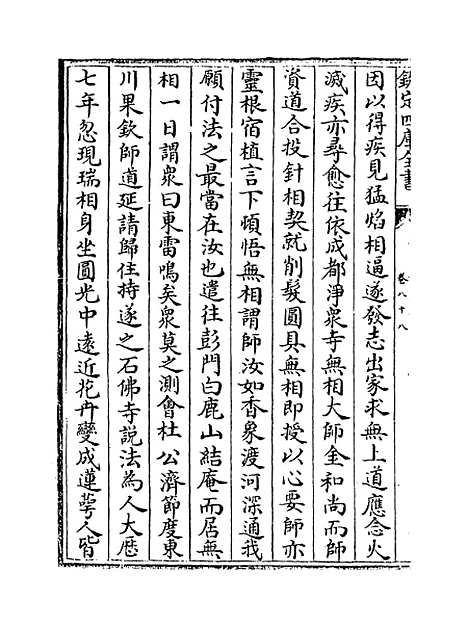 欽定四庫全書
卷八十八
因以得疾見猛焰相逼遂發志出家求無上道應念火
滅疾亦尋愈往依成都淨衆寺無相大師金和尚而師
資道合投針相契就削髮圓具無相即授以心要師亦
靈根宿植言下頓悟無相謂師汝如香象渡河深通我
願付法之最當在汝也遣往彭門白鹿山結庵而居無
相一日謂衆曰東雷鳴矣衆莫之測會杜公濟節度東
川果欽師道延請歸住持遂之石佛寺說法為人大厯
七年忽現瑞相身坐圓光中遠近花卉變成蓮蕚人皆